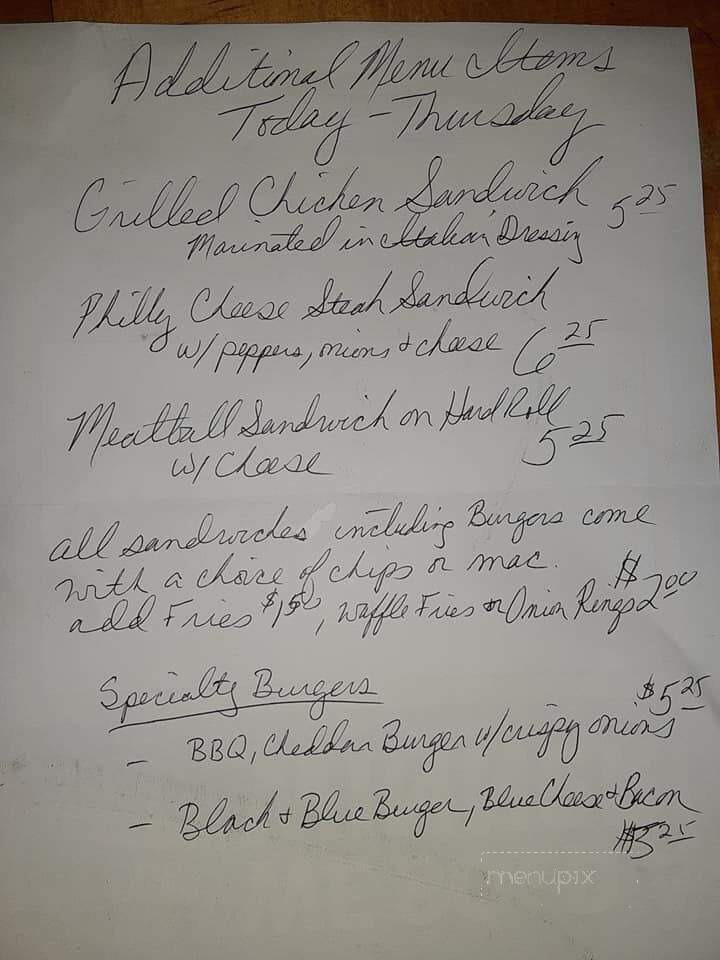 Additional Menu Items
Today - Thursday
Grilled Chicken Sandwich 5 25
Marinated in Italian Dressing
Philly Cheese Steak Sandwich
w/ peppers, onions & cheese 6 25
Meatball Sandwich on Hard Roll
w/ Cheese 5 25
all sandwiches including Burgers come
with a choice of chips or mac.
add Fries $1 50, Waffle Fries or Onion Rings $2 00
Specialty Burgers
$5 25
- BBQ, Cheddar Burger w/crispy onions
- Black & Blue Burger, Blue Cheese & Bacon
$5 25
menupix